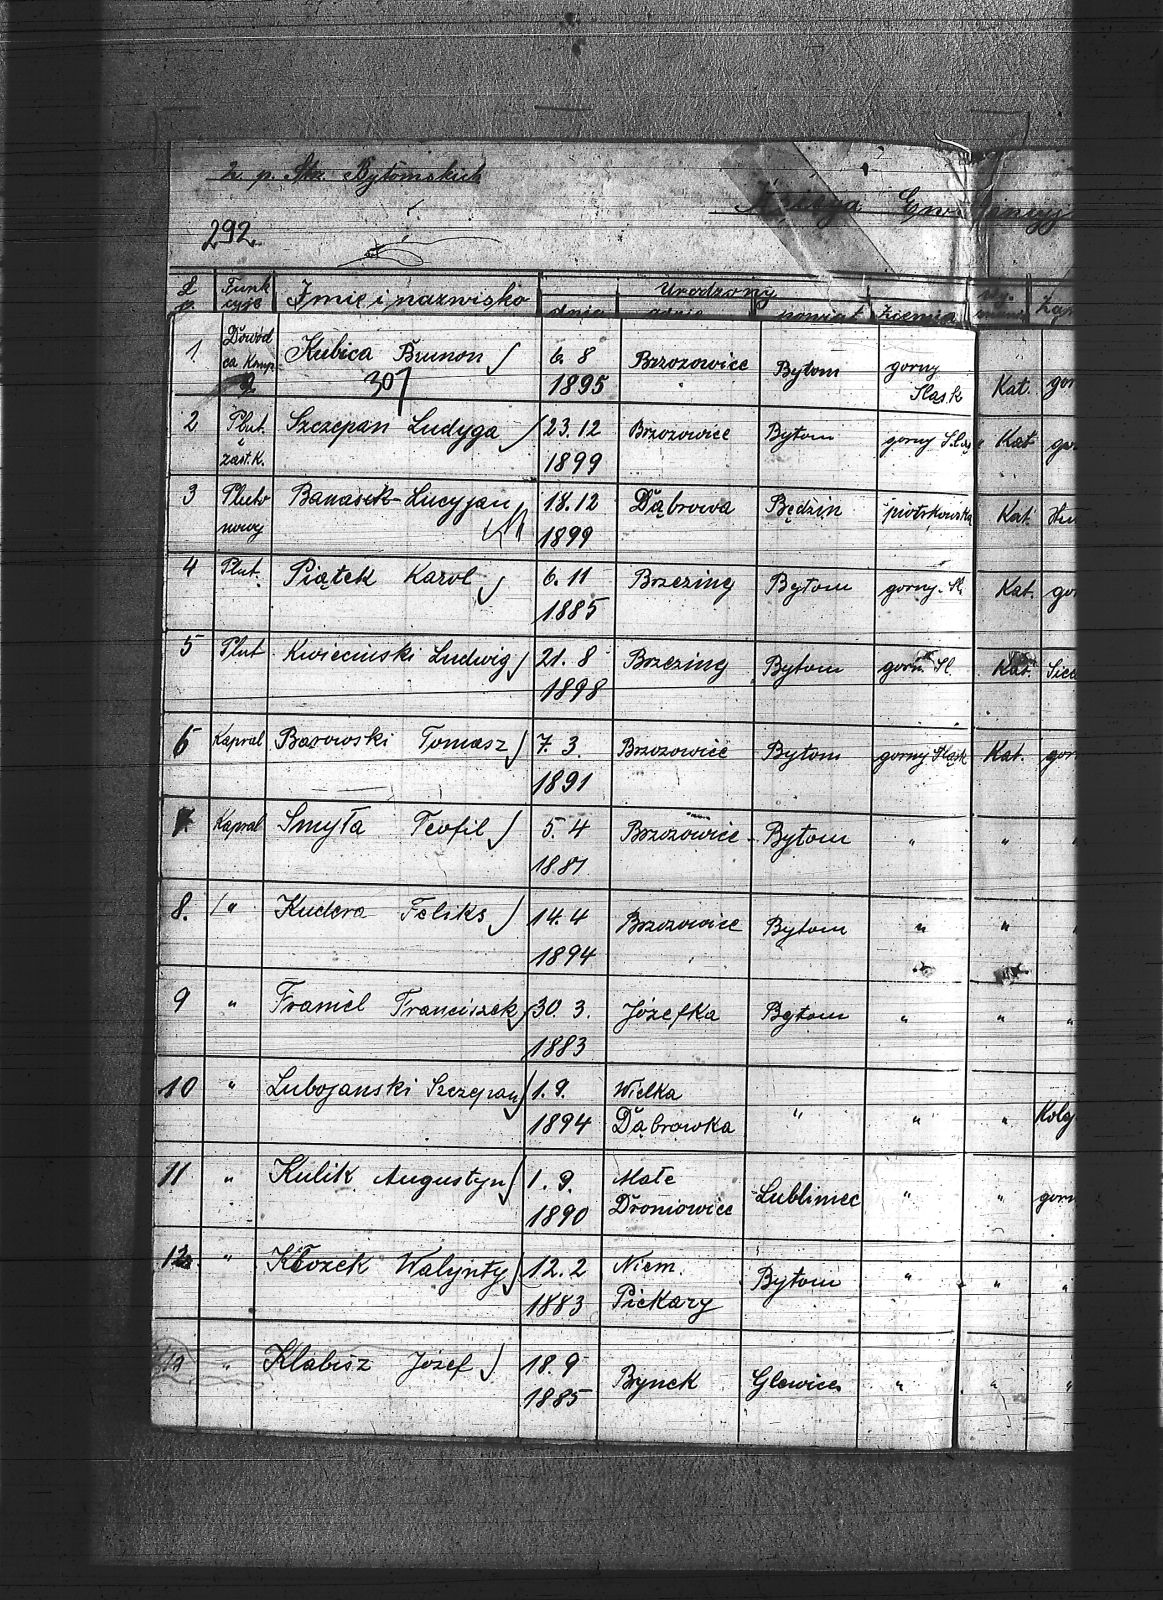 2 p. Strz. Bytomskich
Księga
292.
L. p. Funkcyje Imię i nazwisko Urodzony
dnia gdzie powiat ziemia
1 Dowódca Komp. Kubica Brunon 6. 8 1895 Brzozowice Bytom gorny Slask Kat. gor
307
2 Plut. i zast. K. Szczepan Ludyga 23. 12 1899 Brzozowice Bytom gorny Slas Kat gor
3 Plutonowy Banasik Lucyjan 18. 12 1899 Dąbrowa Będzin piotrkowska Kat.
4 Plut. Piątek Karol 6. 11 1885 Brzeziny Bytom gorny Sl. Kat. gor
5 Plut Kwieciński Ludwig 21. 8 1898 Brzeziny Bytom gorn. Sl. Kat. Siec
6 Kapral Barowski Tomasz 7. 3. 1891 Brzozowice Bytom gorny Sląsk Kat. gor
7 Kapral Smyła Teofil 5. 4 1881 Brzozowice Bytom " "
8. " Kudera Feliks 14. 4 1894 Brzozowice Bytom " "
9 " Franiel Franciszek 30. 3. 1883 Józefka Bytom " " "
10 " Lubojanski Szczepan 1. 9. 1894 Wielka Dąbrowka " " "
11 " Kulik Augustyn 1. 9. 1890 Małe Droniowice Lubliniec " " gorn
12. " Kłozek Walynty 12. 2 1883 Niem. Piekary Bytom " " "
13 " Klabisz Józef 18. 9 1885 Bynek Glewice " " "